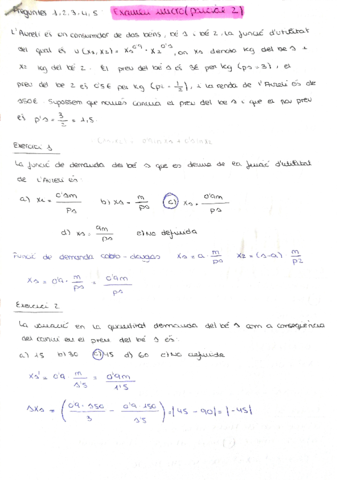 Preguntes 1,2,3,4,5 Examen micro (parcial 2)
L'Aureli és un consumidor de dos bens, bé 1 i bé 2. La funció d'utilitat
del qual és u(x1,x2) = x1^0'9 · x2^0'1, on x1 denota kg del bé 1 i
x2 kg del bé 2. El preu del bé 1 és 3€ per kg (p1 = 3), el
preu del bé 2 és 0'5€ per kg (p2 = 1/2), i la renda de l'Aureli és de
150€. Suposem que només canvia el preu del bé 1 i que el nou preu
és p'1 = 3/2 = 1,5.
Exercici 1
La funció de demanda del bé 1 que es deriva de la funció d'utilitat
de l'Aureli és:
a) x1 = 0'1m/p1 b) x1 = m/p1 c) x1 = 0'9m/p1
d) x1 = 9m/p1 e) No definida
Funció de demanda cobb-douglas x1 = a · m/p1 x2 = (1-a) m/p2
x1 = 0'9 · m/p1 = 0'9m/p1
Exercici 2
La variació en la quantitat demanada del bé 1 com a conseqüència
del canvi en el preu del bé 1 és:
a) 15 b) 30 c) 45 d) 60 e) No definida
x1' = 0'9 m/1'5 = 0'9m/1'5
Δx1 = (0'9 · 150/3 - 0'9 · 150/1'5) = |45 - 90| = |-45|